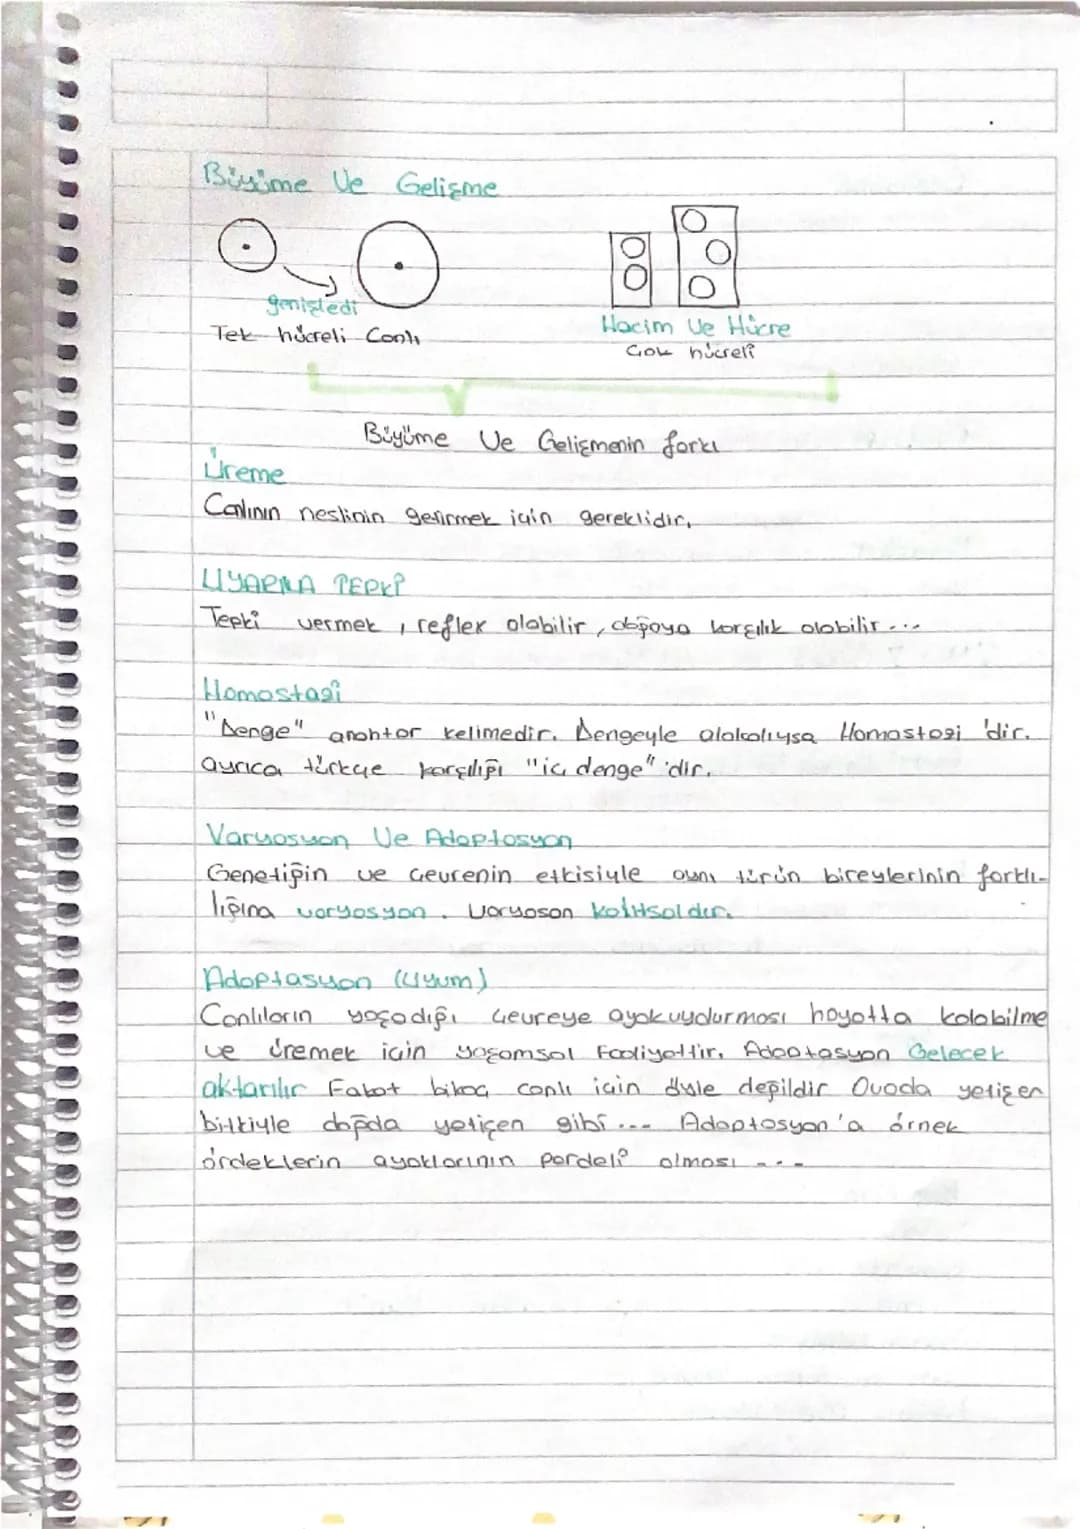 Büyüme Ve Gelişme
genişledi
Tek hücreli Canlı
Hacim Ve Hücre
Çok hücreli
Büyüme Ve Gelişmenin farkı
Üreme
Canlının neslinin getirmek için gereklidir.
UYARMA TEPKİ
Tepki vermek, reflex olabilir, doğaya karşılık olabilir...
Homostasi
"Denge" anahtar kelimedir. Dengeyle alakalıysa Homostasi 'dir.
ayrıca türkçe karşılığı "iç denge" 'dir.
Varyosyon Ve Adaptosyon
Genetiğin ve Çevrenin etkisiyle aynı türün bireylerinin farklı-
lığına varyosyon. Varyoson kalıtsaldır.
Adaptasyon (Uyum)
Canlıların yaşadığı Çevreye ayak uydurması hayatta kalabilme
ve üremek için yaşamsal Faaliyettir. Adaptasyon Gelecek
aktarılır Fakat bikaç canlı için öyle değildir Ovada yetişen
bitkiyle dağda yetişen gibi ... Adaptosyon'a örnek
ördeklerin ayaklarının perdeli olması ...